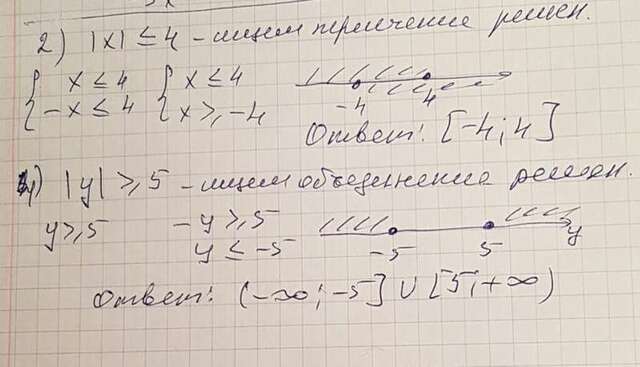 2) |x| ≤ 4 - ищем пересечение решен.
{ x ≤ 4 { x ≤ 4
{ -x ≤ 4 { x ≥ -4
-4 4
Ответ: [-4; 4]
4) |y| ≥ 5 - ищем объединение решен.
y ≥ 5 -y ≥ 5
y ≤ -5 -5 5 y
Ответ: (-∞; -5] ∪ [5; +∞)